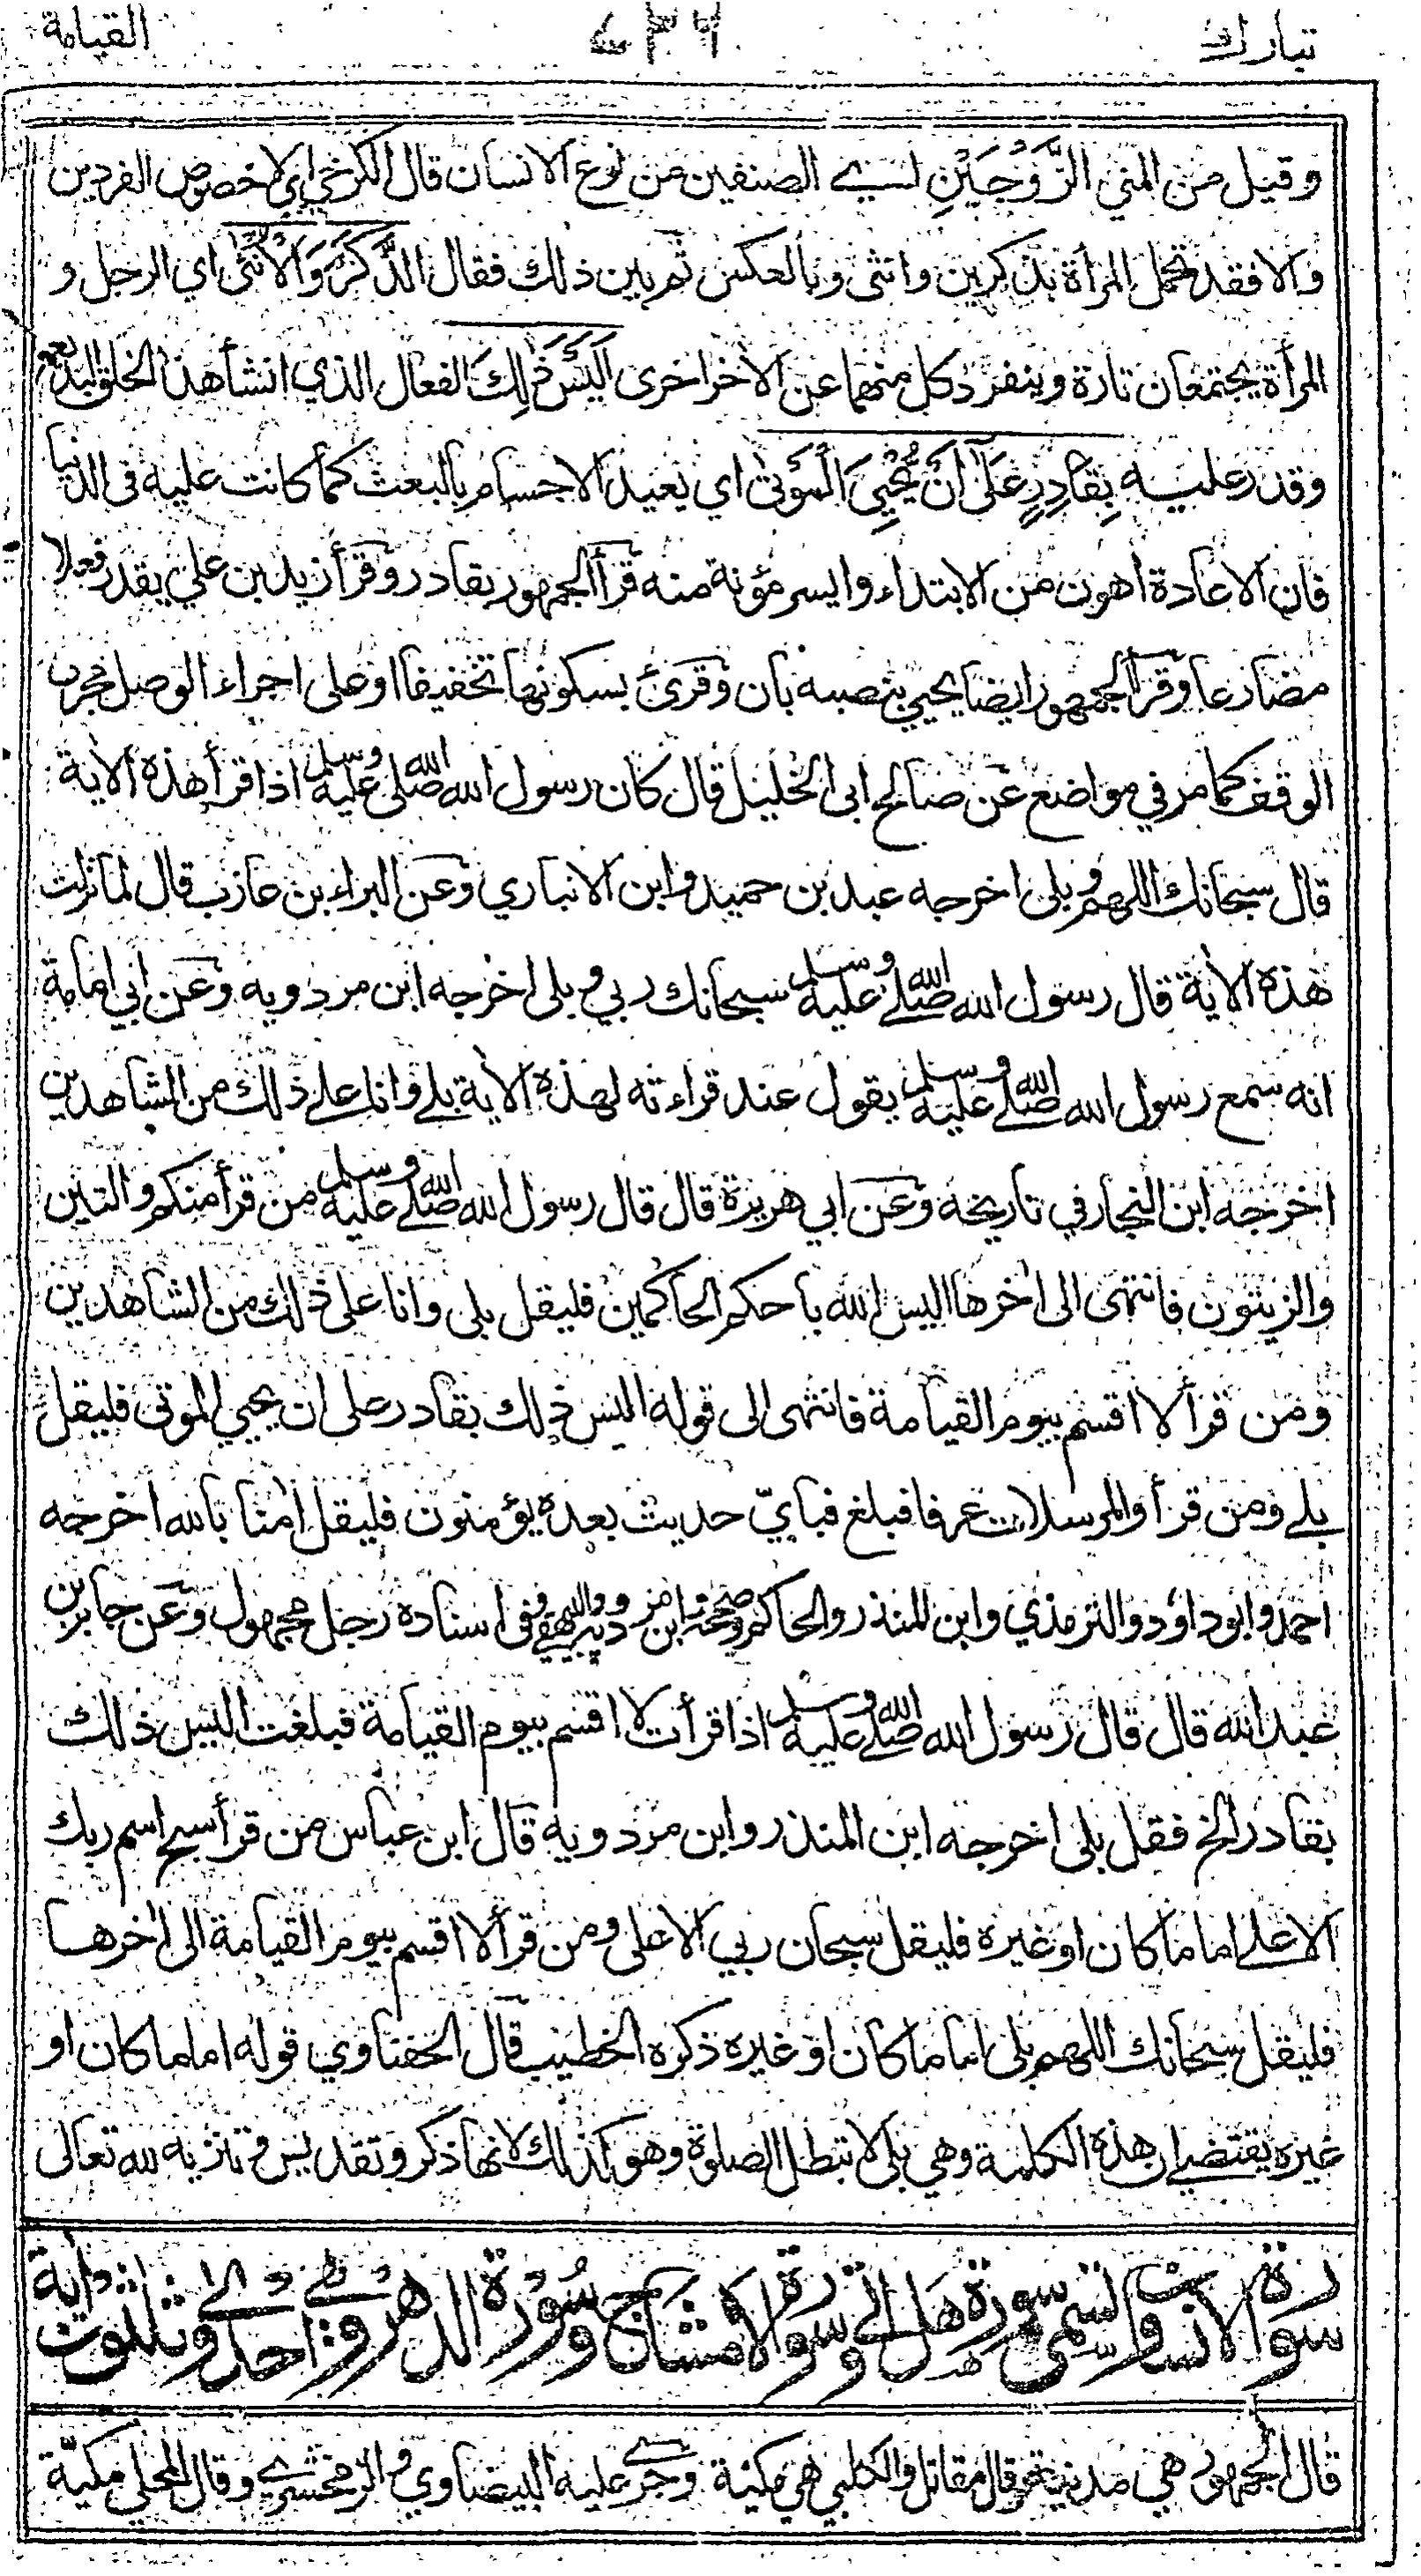 تبارك ٤٣٦ القيامة
وقيل من المني الزَّوْجَيْنِ اي الصنفين من نوع الانسان قال الكرخي اي لاخصوص الفردين
والا فقد تحمل المرأة بذكرين وانثى وبالعكس ثم بين ذلك فقال الذَّكَرَ وَالْأُنْثَى اي الرجل و
المرأة يجتمعان تارة وينفرد كل منهما عن الآخر اخرى اَلَيْسَ ذٰلِكَ الفعال الذي انشأ هذا الخلق البديع
وقدر عليه بِقَادِرٍ عَلَى أَنْ يُحْيِيَ الْمَوْتٰى اي يعيد الاجسام بالبعث كما كانت عليه في الدنيا
فان الاعادة اهون من الابتداء وايسر مؤنة منه قرأ الجمهور بقادر وقرأ زيد بن علي يقدر فعلا
مضارعا وقرأ الجمهور ايضا يحيي بنصبه بان وقرئ بسكونها تخفيفا او على اجراء الوصل مجرى
الوقف كما مر في مواضع عن صالح ابى الخليل قال كان رسول الله صلى الله عليه وسلم اذا قرأ هذه الآية
قال سبحانك اللهم وبلى اخرجه عبد بن حميد وابن الانباري وعن البراء بن عازب قال لما نزلت
هذه الآية قال رسول الله صلى الله عليه وسلم سبحانك ربي وبلى اخرجه ابن مردويه وعن ابي امامة
انه سمع رسول الله صلى الله عليه وسلم يقول عند قراءته لهذه الآية بلى وانا على ذلك من الشاهدين
اخرجه ابن النجار في تاريخه وعن ابي هريرة قال قال رسول الله صلى الله عليه وسلم من قرأ منكم والتين
والزيتون فانتهى الى اٰخرها اليس الله باحكم الحاكمين فليقل بلى وانا على ذلك من الشاهدين
ومن قرأ لا اقسم بيوم القيامة فانتهى الى قوله اليس ذلك بقادر على ان يحيي الموتى فليقل
بلى ومن قرأ والمرسلات عرفا فبلغ فبايّ حديث بعده يؤمنون فليقل اٰمنا بالله اخرجه
احمد وابو داود والترمذي وابن المنذر والحاكم وصححه وابن مردويه والبيهقي وفي اسناده رجل مجهول وعن جابر بن
عبد الله قال قال رسول الله صلى الله عليه وسلم اذا قرأت لا اقسم بيوم القيامة فبلغت اليس ذلك
بقادر الخ فقل بلى اخرجه ابن المنذر وابن مردويه قال ابن عباس من قرأ سبح اسم ربك
الاعلى اماما كان او غيره فليقل سبحان ربي الاعلى ومن قرأ لا اقسم بيوم القيامة الى اٰخرها
فليقل سبحانك اللهم بلى اماما كان او غيره ذكره الخطيب قال الحفناوي قوله اماما كان او
غيره يقتضي ان هذه الكلمة وهي بلى لا تبطل الصلوة وهو كذلك لانها ذكر وتقديس وتنزيه لله تعالى
سورة الانسان وتسمى سورة هل اتى وسورة الامشاج وسورة الدهر وهي احدى وثلثون اٰية
قال الجمهور هي مدنية وقال مقاتل والكلبي هي مكية وجرى عليه البيضاوي والزمخشري وقال المحلي مكية